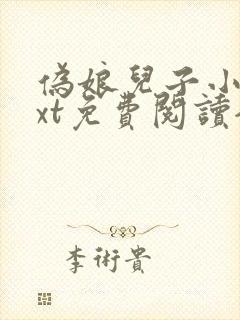 偽娘兒子小
xt免費閱讀
李術貴